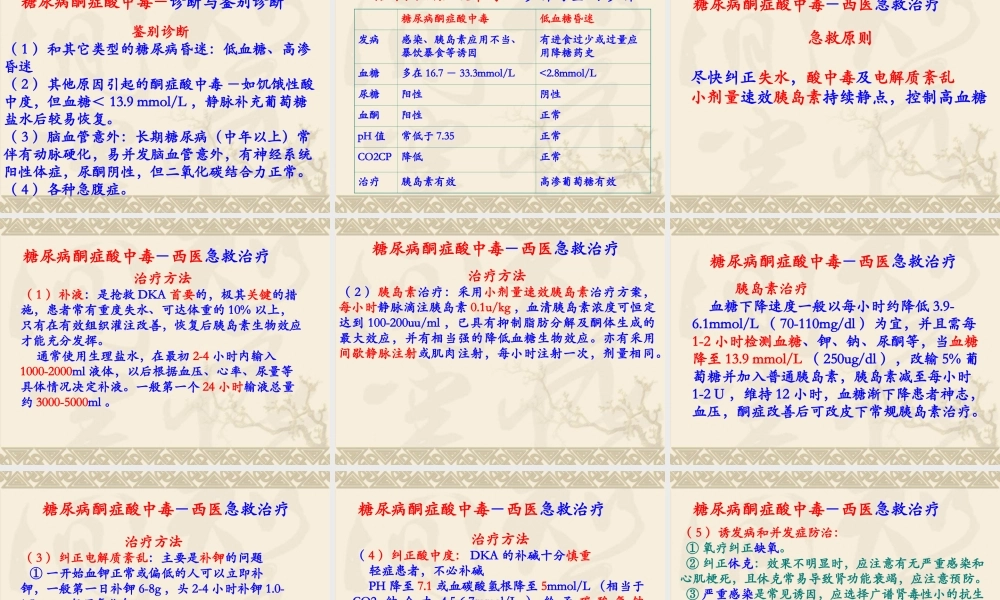 糖尿病酮症酸中毒－诊断与鉴别诊断
鉴别诊断
（1）和其它类型的糖尿病昏迷：低血糖、高渗
昏迷
（2）其他原因引起的酮症酸中毒 －如饥饿性酸
中度，但血糖＜ 13.9 mmol/L ，静脉补充葡萄糖
盐水后较易恢复。
（3）脑血管意外：长期糖尿病（中年以上）常
伴有动脉硬化，易并发脑血管意外，有神经系统
阳性体症，尿酮阴性，但二氧化碳结合力正常。
（4）各种急腹症。
糖尿病酮症酸中毒 低血糖昏迷
发病 感染、胰岛素应用不当、 有进食过少或过量应
暴饮暴食等诱因 用降糖药史
血糖 多在 16.7 － 33.3mmol/L <2.8mmol/L
尿糖 阳性 阴性
血酮 阳性 正常
pH 值 常低于 7.35 正常
CO2CP 降低 正常
治疗 胰岛素有效 高渗葡萄糖有效
糖尿病酮症酸中毒－西医急救治疗
急救原则
尽快纠正失水，酸中毒及电解质紊乱
小剂量速效胰岛素持续静点，控制高血糖
糖尿病酮症酸中毒－西医急救治疗
治疗方法
（1）补液：是抢救 DKA 首要的，极其关键的措
施，患者常有重度失水、可达体重的 10% 以上，
只有在有效组织灌注改善，恢复后胰岛素生物效应
才能充分发挥。
通常使用生理盐水，在最初 2-4 小时内输入
1000-2000ml 液体，以后根据血压、心率、尿量等
具体情况决定补液。一般第一个 24 小时输液总量
约 3000-5000ml 。
糖尿病酮症酸中毒－西医急救治疗
治疗方法
（2）胰岛素治疗：采用小剂量速效胰岛素治疗方案，
每小时静脉滴注胰岛素 0.1u/kg ，血清胰岛素浓度可恒定
达到 100-200uu/ml ，已具有抑制脂肪分解及酮体生成的
最大效应，并有相当强的降低血糖生物效应。亦有采用
间歇静脉注射或肌肉注射，每小时注射一次，剂量相同。
糖尿病酮症酸中毒－西医急救治疗
胰岛素治疗
血糖下降速度一般以每小时约降低 3.9-
6.1mmol/L （ 70-110mg/dl ）为宜，并且需每
1-2 小时检测血糖、钾、钠、尿酮等，当血糖
降至 13.9 mmol/L （ 250ug/dl ），改输 5% 葡
萄糖并加入普通胰岛素，胰岛素减至每小时
1-2 U ，维持 12 小时，血糖渐下降患者神志，
血压，酮症改善后可改皮下常规胰岛素治疗。
糖尿病酮症酸中毒－西医急救治疗
治疗方法
（3）纠正电解质紊乱：主要是补钾的问题
① 一开始血钾正常或偏低的人可以立即补
钾，一般第一日补钾 6-8g ，头 2-4 小时补钾 1.0-
糖尿病酮症酸中毒－西医急救治疗
治疗方法
（4）纠正酸中度： DKA 的补碱十分慎重
轻症患者，不必补碱
PH 降至 7.1 或血碳酸氢根降至 5mmol/L （相当于
糖尿病酮症酸中毒－西医急救治疗
（5）诱发病和并发症防治：
① 氧疗纠正缺氧。
② 纠正休克：效果不明显时，应注意有无严重感染和
心肌梗死，且休克常易导致肾功能衰竭，应注意预防。
③ 严重感染是常见诱因，应选择广谱肾毒性小的抗生